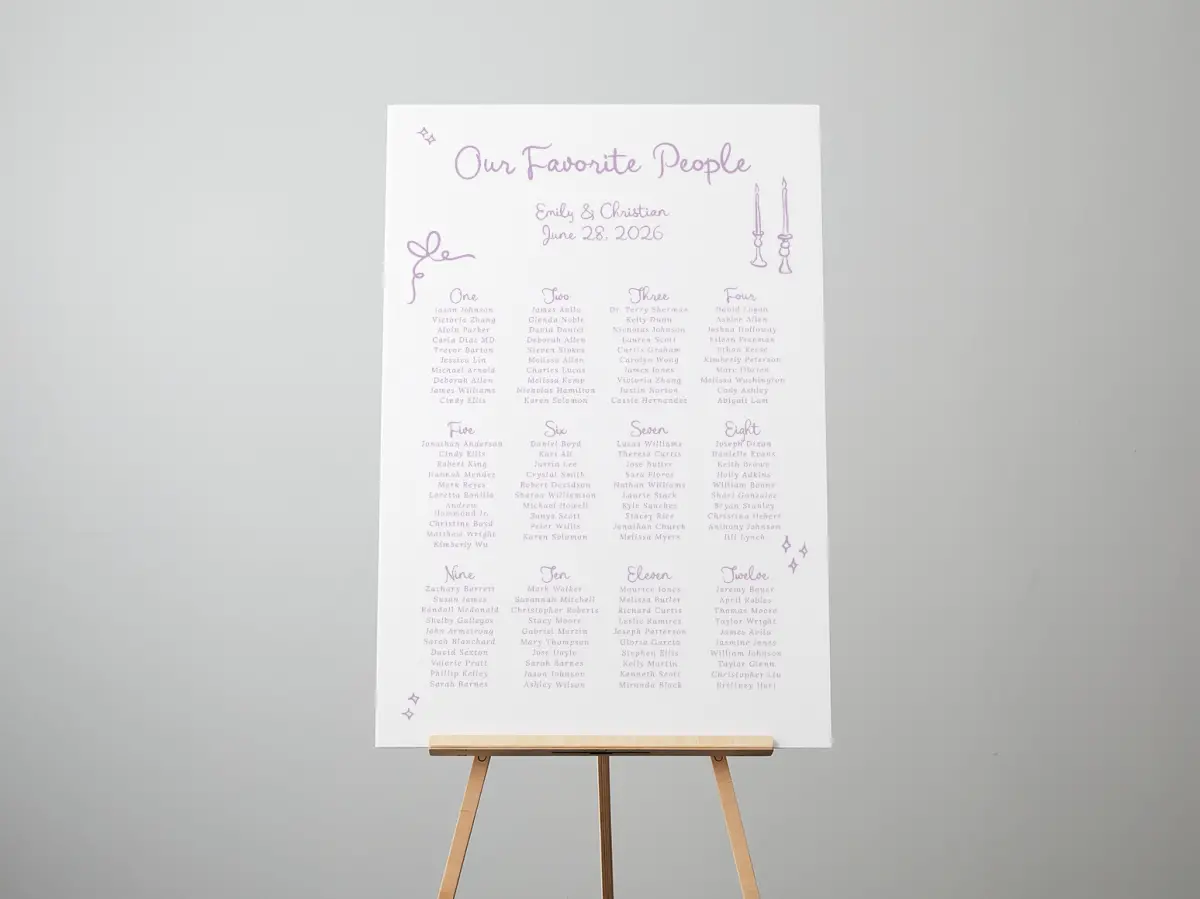 Our Favorite People
Emily & Christian
June 28, 2026
One
Jason Johnson
Victoria Zhang
Alvin Parker
Carla Diaz MD
Trevor Barton
Jessica Lin
Michael Arnold
Deborah Allen
James Williams
Cindy Ellis
Two
James Avila
Glenda Noble
David Daniel
Deborah Allen
Steven Stokes
Melissa Allen
Charles Lucas
Melissa Kemp
Nicholas Hamilton
Karen Solomon
Three
Dr. Terry Sherman
Kelly Dunn
Nicholas Johnson
Lauren Scott
Curtis Graham
Carolyn Wong
James Jones
Victoria Zhang
Justin Burton
Cassie Hernandez
Four
David Logan
Ashlee Allen
Joshua Holloway
Eileen
Ethan
Kimberly Peterson
Marc
Melissa Washington
Cody Ashley
Abigail Lam
Five
Jonathan Anderson
Cindy Ellis
Robert King
Hannah Mendez
Mark Reyes
Loretta Bonilla
Andrew
Hammond Jr.
Christine Boyd
Matthew Wright
Kimberly Wu
Six
Daniel Boyd
Kari Ali
Justin Lee
Crystal Smith
Robert Davidson
Sharon Williamson
Michael Howell
Tonya Scott
Peter Willis
Karen Solomon
Seven
Lucas Williams
Theresa Curtis
Jose Butler
Sara Flores
Nathan Williams
Laurie Stark
Kyle Sanchez
Stacey Rice
Jonathan Church
Melissa Myers
Eight
Joseph Dixon
Danielle Evans
Keith Brown
Holly Adkins
William Boone
Shari Gonzalez
Bryan Stanley
Christina Hebert
Anthony Johnson
Jill Lynch
Nine
Zachary Barrett
Susan James
Randall Mcdonald
Shelby Gallegos
John Armstrong
Sarah Blanchard
David Sexton
Valerie Pratt
Phillip Kelley
Sarah Barnes
Ten
Mark Walker
Savannah Mitchell
Christopher Roberts
Stacy Moore
Gabriel Martin
Mary Thompson
Jose Doyle
Sarah Barnes
Jason Johnson
Ashley Wilson
Eleven
Maurice Jones
Melissa Butler
Richard Curtis
Leslie Ramirez
Joseph Patterson
Gloria Garcia
Stephen Ellis
Kelly Martin
Kenneth Scott
Miranda Black
Twelve
Jeremy Boyer
April Robles
Thomas Moore
Taylor Wright
James Avila
Jasmine Jones
William Johnson
Taylor Glenn
Christopher Liu
Brittney Hart